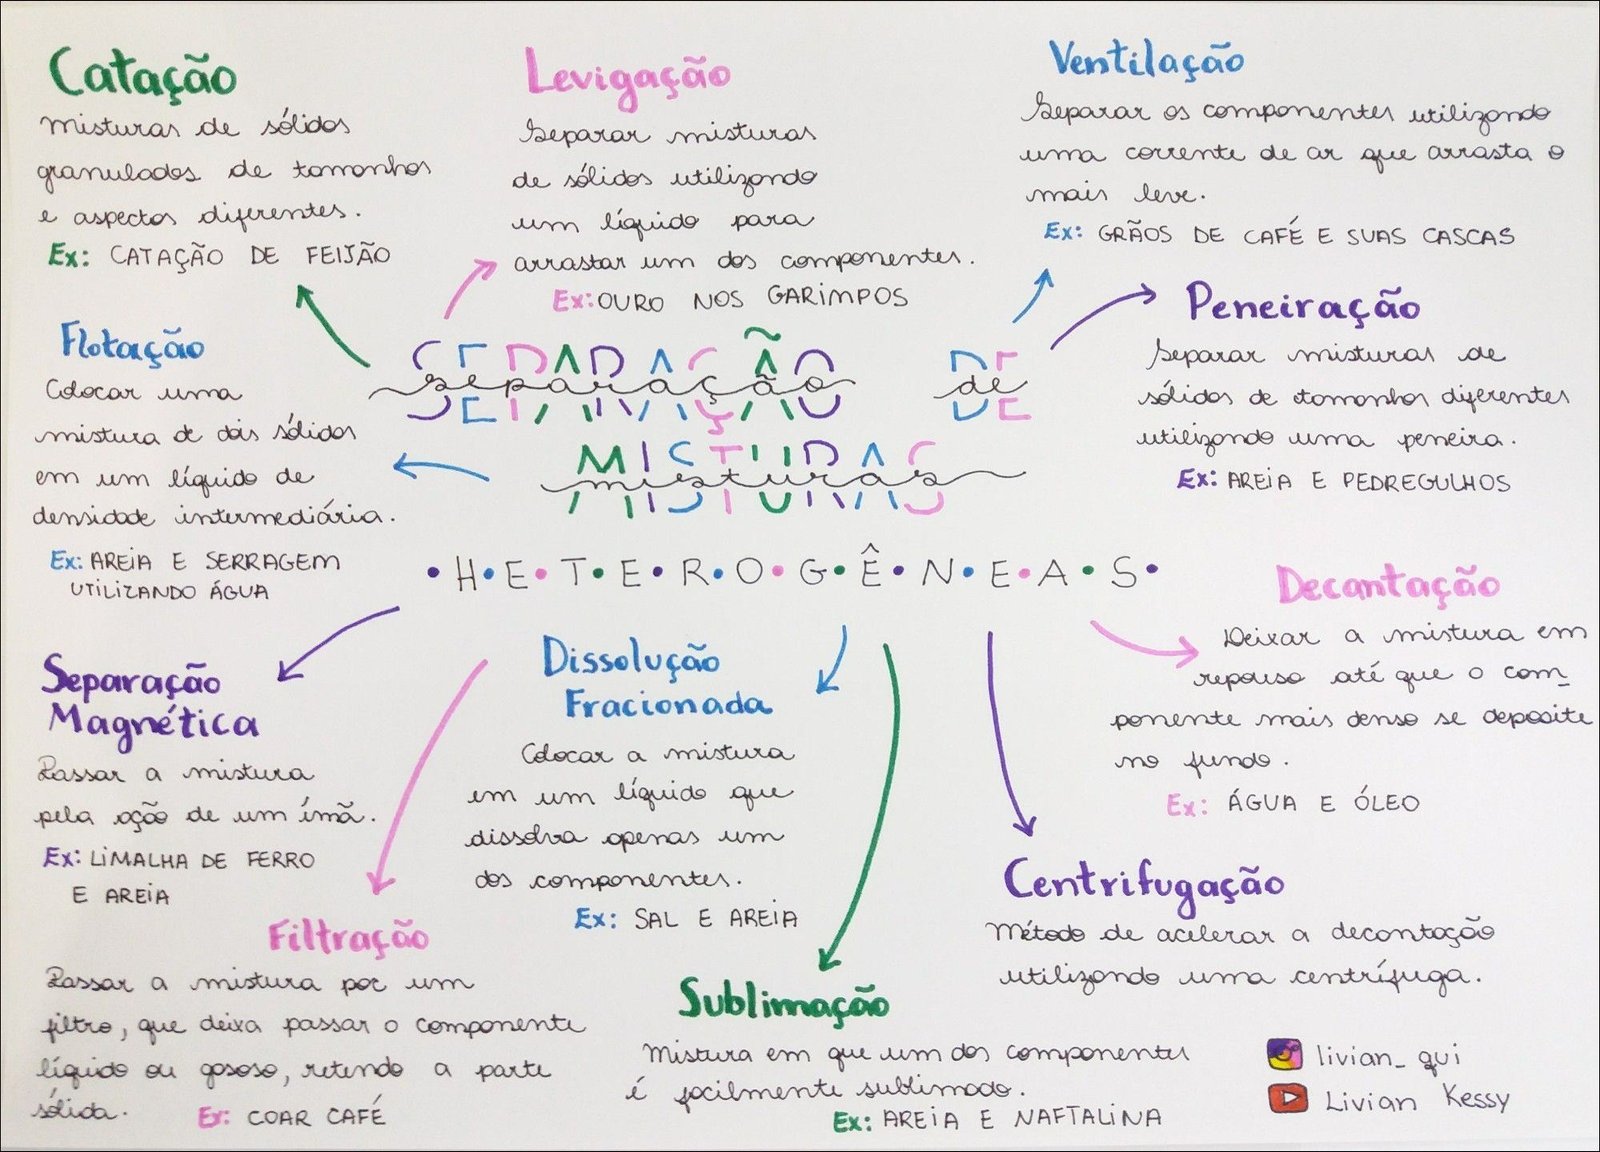 Catação
Misturas de sólidos
granulados de tamanhos
e aspectos diferentes.
Ex: CATAÇÃO DE FEIJÃO
Levigação
Separar misturas
de sólidos utilizando
um líquido para
arrastar um dos componentes.
Ex: OURO NOS GARIMPOS
Ventilação
Separar os componentes utilizando
uma corrente de ar que arrasta o
mais leve.
Ex: GRÃOS DE CAFÉ E SUAS CASCAS
Peneiração
Separar misturas de
sólidos de tamanhos diferentes
utilizando uma peneira.
Ex: AREIA E PEDREGULHOS
Flotação
Colocar uma
mistura de dois sólidos
em um líquido de
densidade intermediária.
Ex: AREIA E SERRAGEM
UTILIZANDO ÁGUA
separação de
misturas
•H•E•T•E•R•O•G•Ê•N•E•A•S•
Decantação
Deixar a mistura em
repouso até que o com_
ponente mais denso se deposite
no fundo.
Ex: ÁGUA E ÓLEO
Separação
Magnética
Passar a mistura
pela ação de um ímã.
Ex: LIMALHA DE FERRO
E AREIA
Dissolução
Fracionada
Colocar a mistura
em um líquido que
dissolva apenas um
dos componentes.
Ex: SAL E AREIA
Centrifugação
Método de acelerar a decantação
utilizando uma centrífuga.
Filtração
Passar a mistura por um
filtro, que deixa passar o componente
líquido ou gasoso, retendo a parte
sólida.
Ex: COAR CAFÉ
Sublimação
Mistura em que um dos componentes
é facilmente sublimado.
Ex: AREIA E NAFTALINA
livian_qui
Livian Kessy